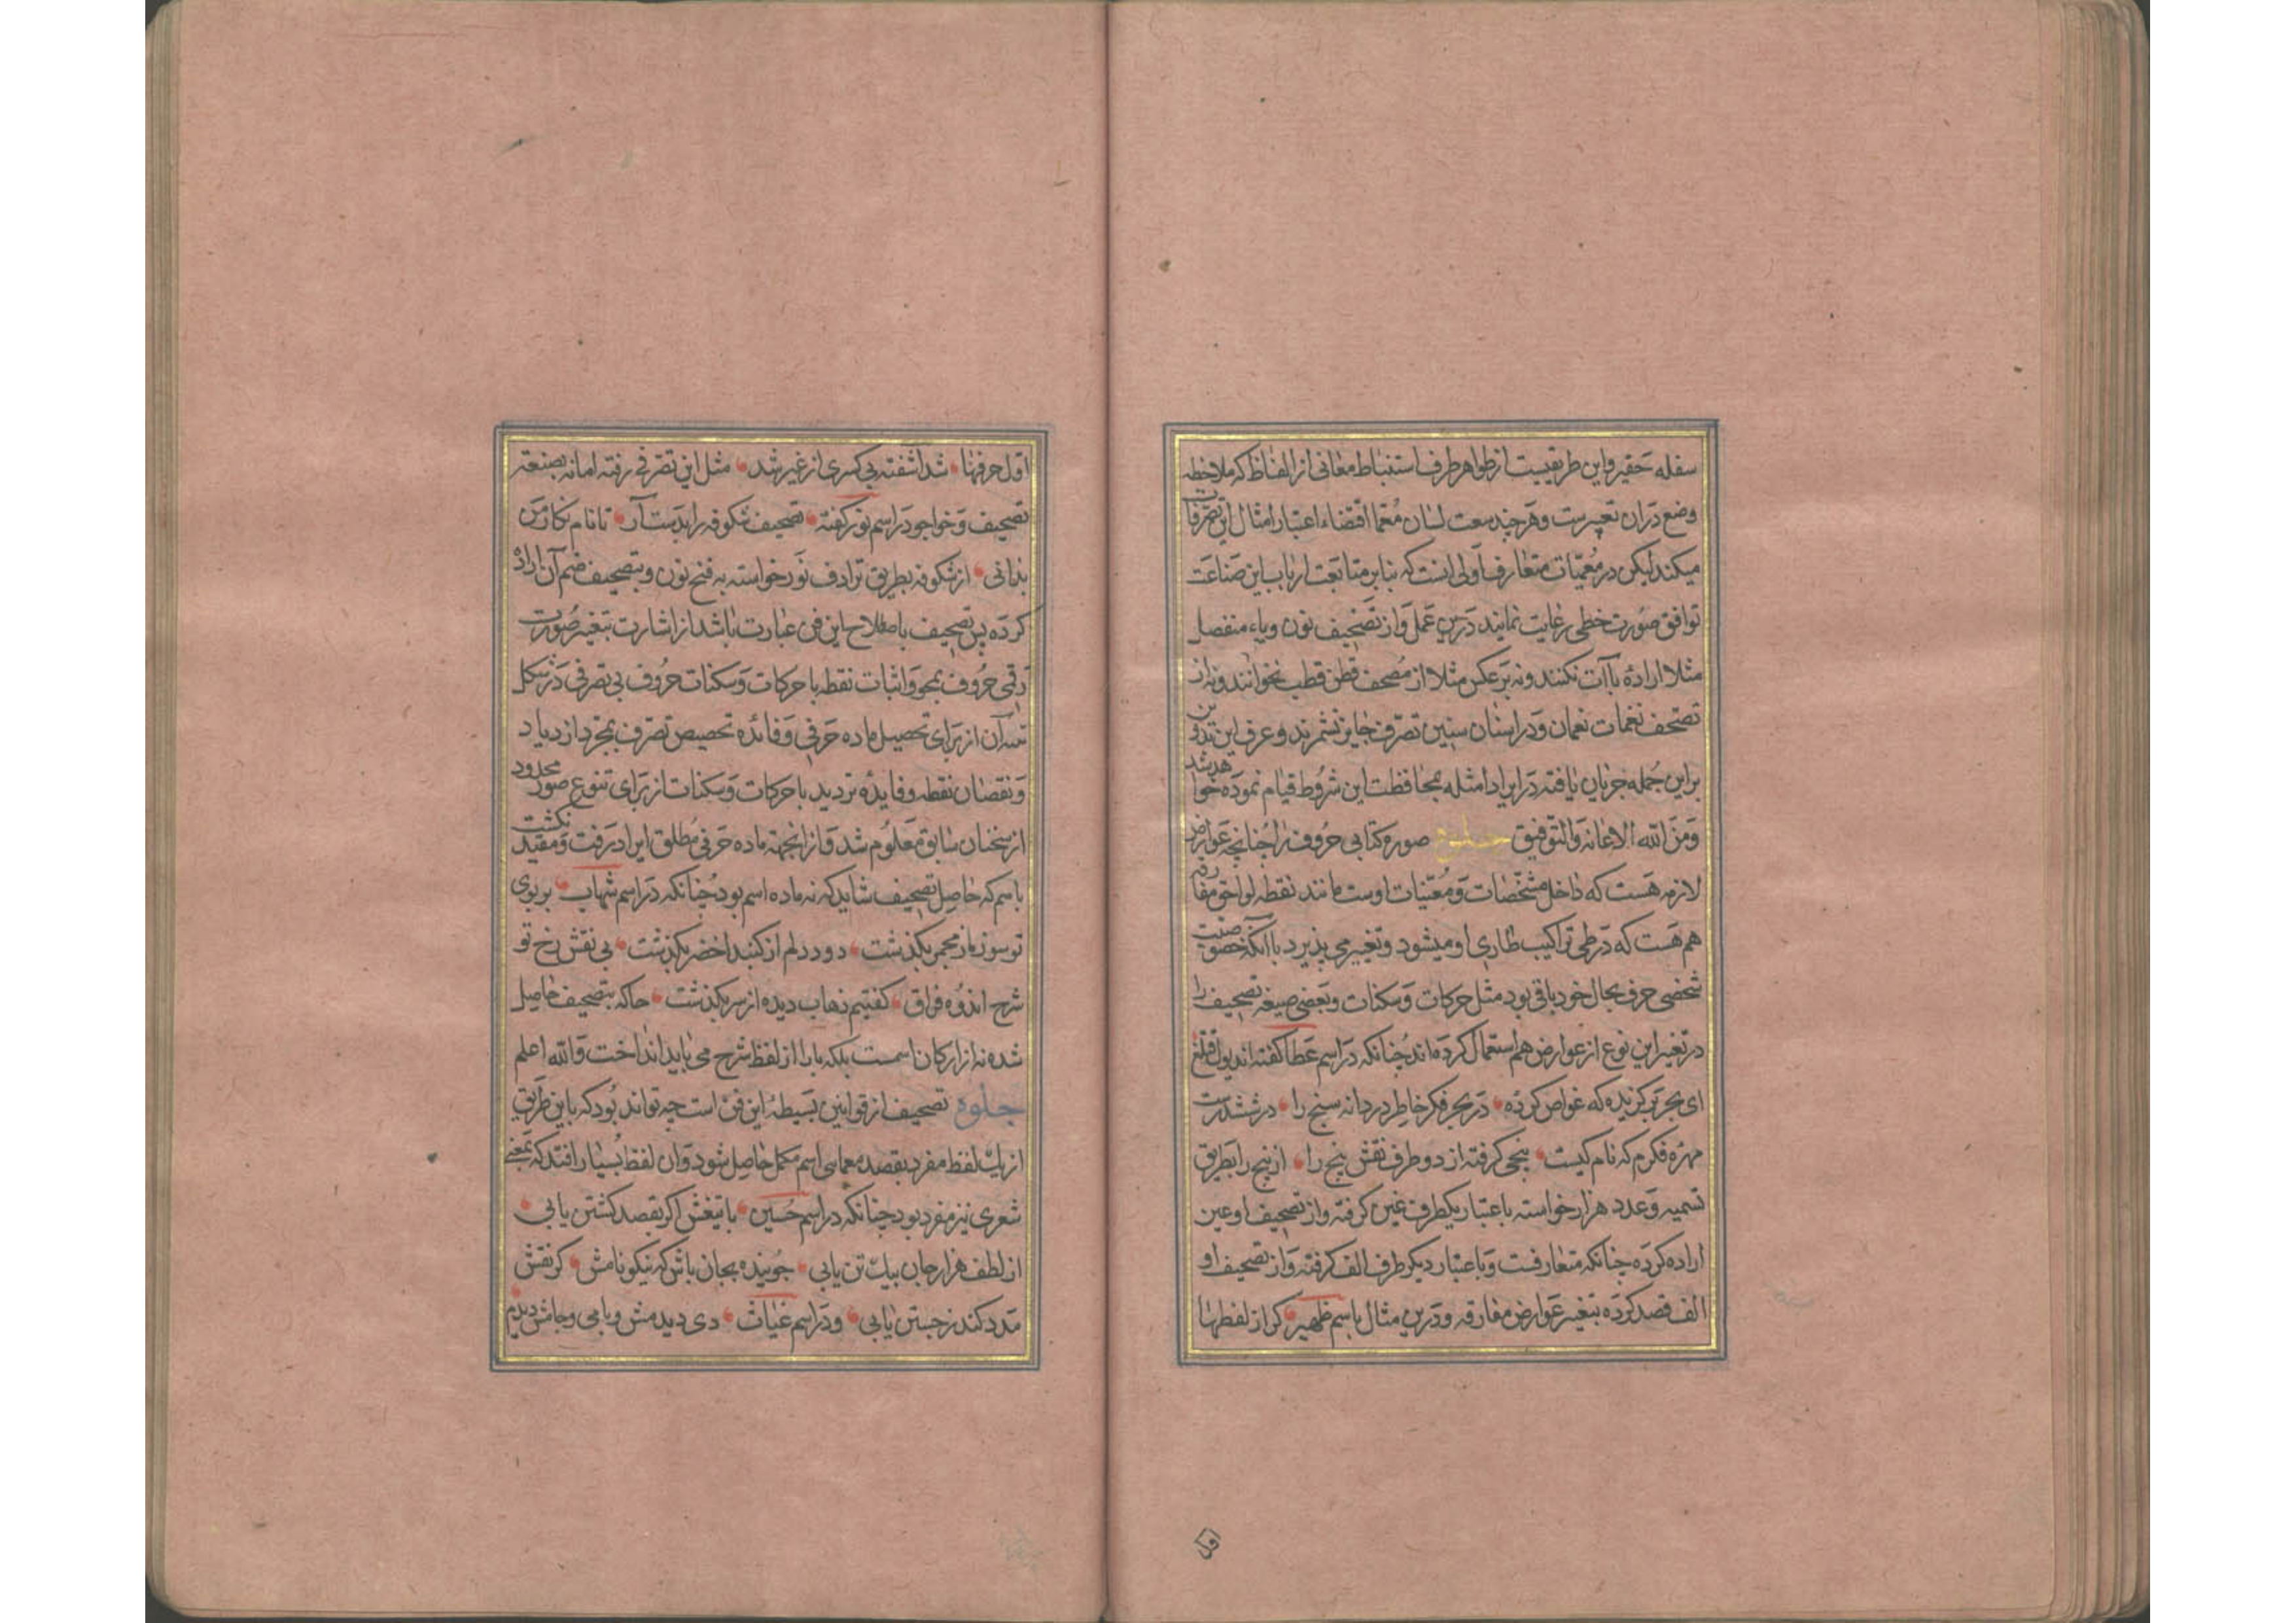 سفله حقیر و این طریقیست از ظواهر طرف استنباط معانی از الفاظ که ملاحظه
وضع دران تعبیرست و هر چند سعت لسان معما اقتضاء اعتبار امثال این تصرفات
میکند لیکن در معمیات متعارف اولی انست که بنا بر متابعت ارباب این صناعت
توافق صورت خطی رعایت نمایند درین عمل و از تصحیف نون و یاء منفصل
مثلا اراده با آت نکنند و نه بر عکس مثلا از مصحف قطن قطب نخوانند و نه از
تصحف نغمات نعمان و در استنان سنین تصرف جایز نشمرند و عرف این تدوین
براین جمله جریان یافته در ایراد امثله بمحافظت این شروط قیام نموده خواهد شد
و من الله الاعانه والتوفیق جلوه صوره کتابی حروف را چنانچه عوارض
لازمه هست که داخل مشخصات و معینات اوست مانند نقطه لواحق مفارقه
هم هست که در طی تراکیب طاری او میشود و تغییر می پذیرد با آنکه خصوصیت
شخصی حرف بحال خود باقی بود مثل حرکات و سکنات و بعضی صیغه تصحیف را
در تغیر این نوع از عوارض هم استعمال کرده‌اند چنانکه در اسم عطا گفته اند
ای بحر تر گزیده که غواص کرده در بحر فکر خاطر دردانه سنج را در ششدرست
مهره فکرم که نام کیست پنجی گرفته از دو طرف نقش پنج را از پنج را بطریق
تسمیه و عدد هزار خواسته باعتبار یکطرف غین گرفته و از تصحیف او عین
اراده کرده چنانکه متعارفست و باعتبار دیگر طرف الف گرفته و از تصحیف او
الف قصد کرده بتغیر عوارض مفارقه و درین مثال باسم ظهیر کر از لفط رها
اول حرفها شد اشفته بی کسری از غیر شد مثل این تصرفی رفته اما نه بصنعة
تصحیف و خواجو در اسم نور گفته تصحیف شکوفه را بدست آر تا نام نکار من
بدانی از شکوفه بطریق ترادف نور خواسته به فتح نون و بتصحیف ضم آن اراده
کرده پس تصحیف باصطلاح این فن عبارت باشد از اشارت بتغیر صورت
رقمی حروف بمحو و اثبات نقطه یا حرکات و سکنات حروف بی تصرفی در شکل
تنه آن از برای تحصیل ماده حرفی و فائده تحصیص تصرف بمجرد ازدیاد
و نقصان نقطه و فایده تردید با حرکات و سکنات از برای تنوع صور محدود
از سخنان سابق معلوم شد و از انجهة ماده حرفی مطلق ایراد رفت و مقید نکشت
باسم که حاصل تصحیف شاید که نه ماده اسم بود چنانکه در اسم شهاب بر بوی
تو سوزم از مجمر بگذشت دود دلم از کنبد اخضر بگذشت بی نقش رخ تو
شرح اندوه فراق گفتیم نهاب دیده از سر بگذشت حا که بتصحیف حاصل
شده نه از ارکان اسمست بلکه با را از لفظ شرح می باید انداخت و الله اعلم
جلوه تصحیف از قوانین بسیطه این فن است چه تواند بود که باین طریق
از یک لفظ مفرد بقصد معماسی اسم مکمل حاصل شود و آن لفظ بسیار افتد که بمعنی
شعری نیز مفرد بود چنانکه در اسم حسین با تیغش اکر بقصد کشتن یابی
از لطف هزار جان بیک تن یابی جوینده بجان باش که نیکو نامش کر نقش
مدد کند ز جستن یابی و در اسم غیاث دی دیدمش و بامی و جامش دیدم